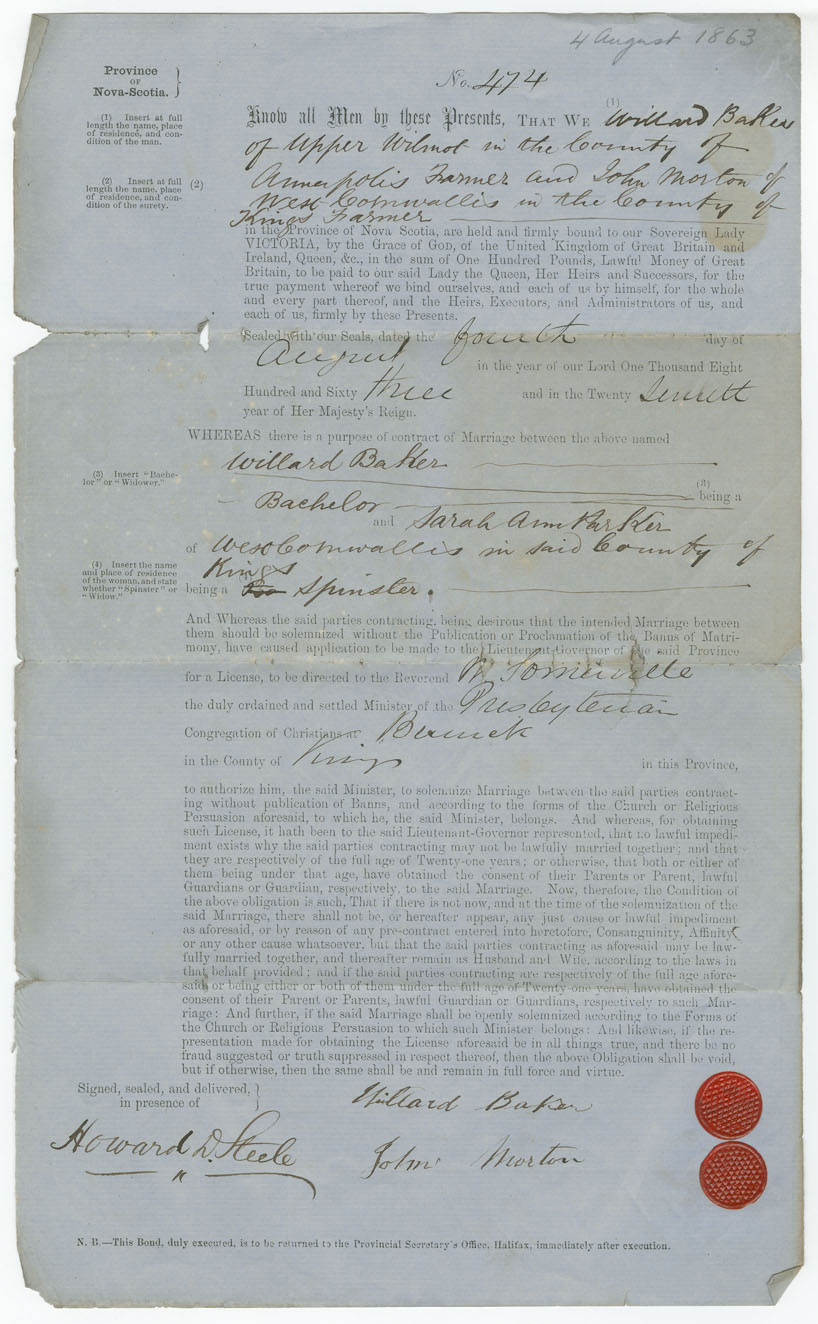 4 August 1863
Province
OF
Nova-Scotia. }
No. 474
(1) Insert at full
length the name, place
of residence, and con-
dition of the man.
(1)
Know all Men by these Presents, THAT WE Willard Baker
of Upper Wilmot in the County of
(2) Insert at full
length the name, place
of residence, and con-
dition of the surety.
(2)
Annapolis Farmer and John Morton of
West Cornwallis in the County of
Kings Farmer
in the Province of Nova Scotia, are held and firmly bound to our Sovereign Lady
VICTORIA, by the Grace of GOD, of the United Kingdom of Great Britain and
Ireland, Queen, &c., in the sum of One Hundred Pounds, Lawful Money of Great
Britain, to be paid to our said Lady the Queen, Her Heirs and Successors, for the
true payment whereof we bind ourselves, and each of us by himself, for the whole
and every part thereof, and the Heirs, Executors, and Administrators of us, and
each of us, firmly by these Presents.
Sealed with our Seals, dated the fourth day of
August in the year of our Lord One Thousand Eight
Hundred and Sixty three and in the Twenty
year of Her Majesty's Reign.
WHEREAS there is a purpose of contract of Marriage between the above named
Willard Baker
(3) Insert "Bache-
lor" or "Widower."
(3)
being a
Bachelor
and Sarah Ann Parker
of West Cornwallis in said County of
Kings
(4) Insert the name
and place of residence
of the woman, and state
whether "Spinster" or
"Widow."
being a Spinster.
And Whereas the said parties contracting, being desirous that the intended Marriage between
them should be solemnized without the Publication or Proclamation of the Banns of Matri-
mony, have caused application to be made to the Lieutenant-Governor of the said Province
for a License, to be directed to the Reverend W Somerville
the duly ordained and settled Minister of the Presbyterian
Congregation of Christians at Berwick
in the County of Kings in this Province,
to authorize him, the said Minister, to solemnize Marriage between the said parties contract-
ing without publication of Banns, and according to the forms of the Church or Religious
Persuasion aforesaid, to which he, the said Minister, belongs. And whereas, for obtaining
such License, it hath been to the said Lieutenant-Governor represented, that no lawful impedi-
ment exists why the said parties contracting may not be lawfully married together; and that
they are respectively of the full age of Twenty-one years; or otherwise, that both or either of
them being under that age, have obtained the consent of their Parents or Parent, lawful
Guardians or Guardian, respectively, to the said Marriage. Now, therefore, the Condition of
the above obligation is such, That if there is not now, and at the time of the solemnization of the
said Marriage, there shall not be, or hereafter appear, any just cause or lawful impediment
as aforesaid, or by reason of any pre-contract entered into heretofore, Consanguinity, Affinity
or any other cause whatsoever, but that the said parties contracting as aforesaid may be law-
fully married together, and thereafter remain as Husband and Wife, according to the laws in
that behalf provided; and if the said parties contracting are respectively of the full age afore-
said, or being either or both of them under the full age of Twenty-one years, have obtained the
consent of their Parent or Parents, lawful Guardian or Guardians, respectively to such Mar-
riage: And further, if the said Marriage shall be openly solemnized according to the Forms of
the Church or Religious Persuasion to which such Minister belongs: And likewise, if the re-
presentation made for obtaining the License aforesaid be in all things true, and there be no
fraud suggested or truth suppressed in respect thereof, then the above Obligation shall be void,
but if otherwise, then the same shall be and remain in full force and virtue.
Signed, sealed, and delivered, }
in presence of
Willard Baker
Howard D. Steele
John Morton
N. B.—This Bond, duly executed, is to be returned to the Provincial Secretary's Office, Halifax, immediately after execution.